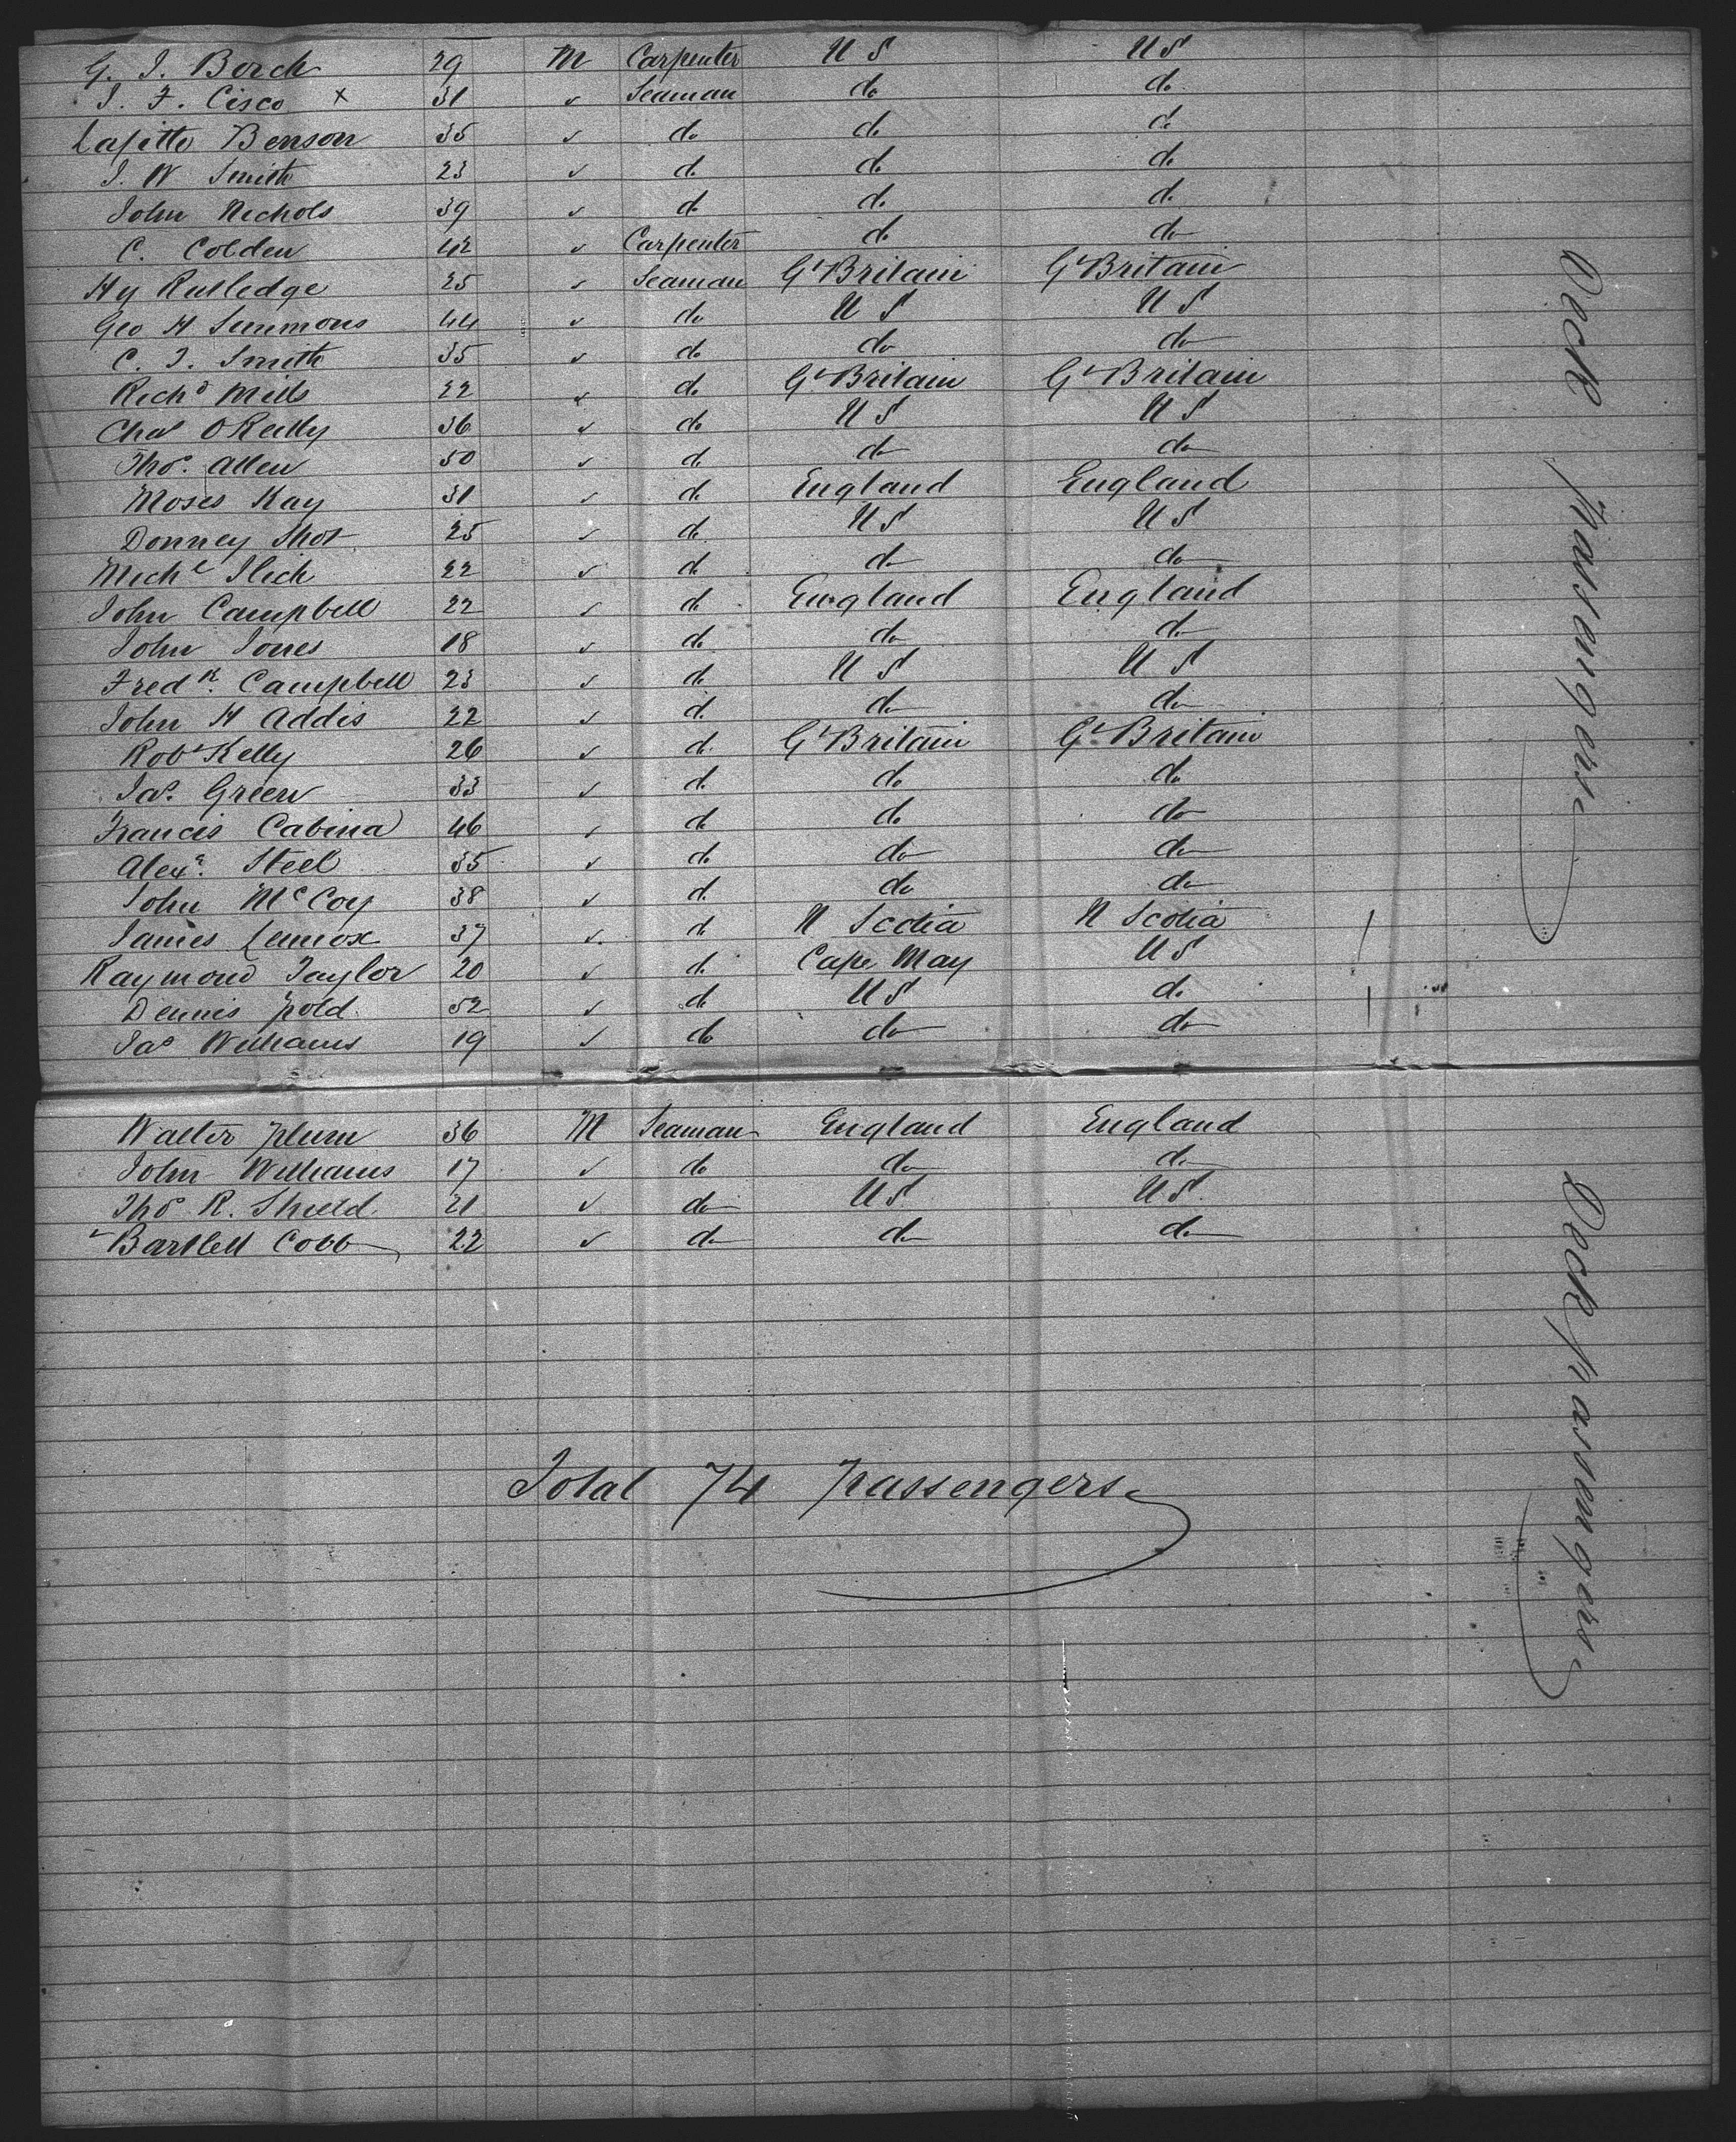 G. I. Borch 29 M Carpenter U S U S
I. F. Cisco x 31 ✓ Seaman do do
Lafitte Benson 35 ✓ do do do
I. W Smith 23 ✓ do do do
John Nichols 39 ✓ do do do
C. Colden 42 ✓ Carpenter do do
Hy Rutledge 25 ✓ Seaman Gt Britain Gt Britain
Geo H Simmons 44 ✓ do U S U S
C. I. Smith 35 ✓ do do do
Richd Mills 22 ✓ do Gt Britain Gt Britain
Chas OReilly 36 ✓ do U S U S
Thos. Allen 50 ✓ do do do
Moses Kay 31 ✓ do England England
Donney Shot 25 ✓ do U S U S
Michl Ilich 22 ✓ do do do
John Campbell 22 ✓ do England England
John Jones 18 ✓ do do do
Fredk. Campbell 23 ✓ do U S U S
John H Addis 22 ✓ do do do
Robt Kelly 26 ✓ do Gt Britain Gt Britain
Jas. Green 33 ✓ do do do
Francis Cabina 46 ✓ do do do
Alexr. Steel 35 ✓ do do do
John McCoy 38 ✓ do do do
James Lennox 37 ✓ do N Scotia N Scotia
Raymond Taylor 20 ✓ do Cape May U S
Dennis Pold 52 ✓ do U S do
Jas Williams 19 ✓ do do do
Deck Passengers
Walter Plum 36 M Seaman England England
John Williams 17 ✓ do do do
Thos R. Shield 21 ✓ do U S U S
Bartlett Cobb 22 ✓ do do do
Deck Passengers
Total 74 Passengers